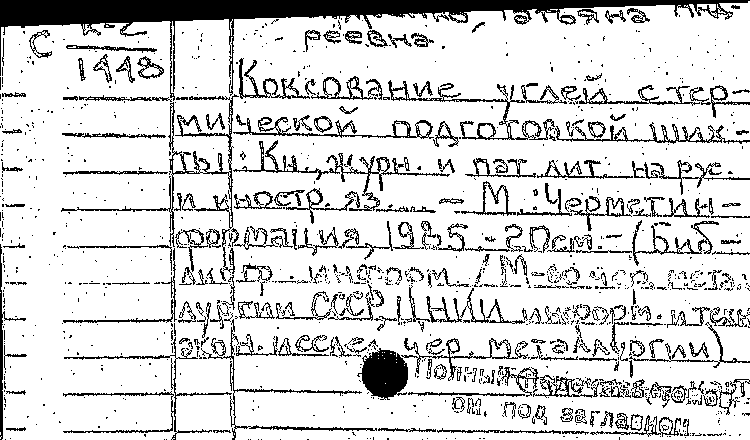 Татьяна Анд-
реевна.
С К-2
1448
Коксование углей с тер-
мической подготовкой ших-
ты: Кн., журн. и пат. лит. на рус.
и иностр. яз.... — М.: Черметин-
формация, 1985. - 20см. - (Биб-
лиогр. информ. / М-во чер. метал
лургии СССР, ЦНИИ информ. и техн
экон. исслед. чер. металлургии).
Полный
ом. под заглавием